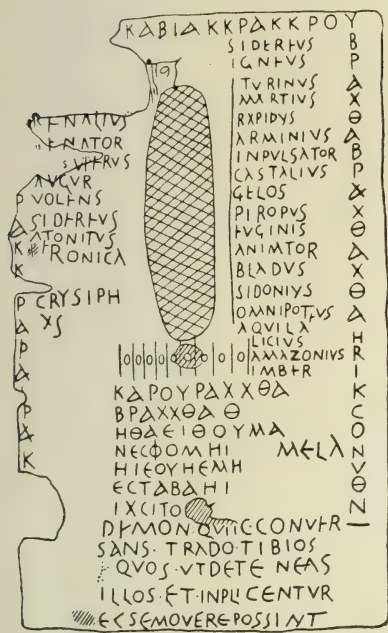 ΚΑΒΙΑΚΚΡΑΚΚΡΟΥ
SIDEREVS
IGNEVS
TVRINVS
MARTIVS
RXPIDVS
ARMINIVS
INPVLSATOR
CASTALIVS
GELOS
PIROPVS
EVGINIS
ANIMTOR
BLADVS
SIDONIVS
OMNIPOTEVS
AQVILA
LICIVS
AMAZONIVS
IMBER
ENATOR
AVGVR
VOLENS
SIDEREVS
ATONITVS
RONICA
CRYSIPH
XS
ΚΑΡΟΥΡΑΧΧΘΑ
ΒΡΑΧΧΘΑ Θ
ΗΘΑΕΙΘΟΥΜΑ
ΝΕСΦΟΜΗΙ
MELA
ΗΙΕΟΥΗΕΜΗ
ΕСΤΑΒΑΗΙ
IXCITO
DEMON·QVIICCONVER
SANS·TRADO·TIBIOS
QVOS·VTDETE NEAS
ILLOS·ET·INPLICENTVR
ECSEMOVEREPOSSINT